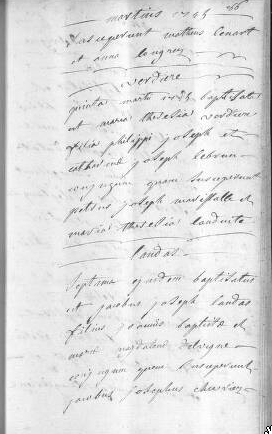 martius 1745 36
susceperunt matheus Lenart
et anna
Verdiere
quinta martii 1745 baptisata
est maria theresia verdiere
filia philippi joseph et
catharina joseph lebrun
conjugum quam susceperunt
petrus joseph et
maria theresia
Landas
septima ejusdem baptisatus
est jacobus joseph landas
filius joannis baptistae et
mariae magdalena delvigne
conjugum quem susceperunt
jacobus